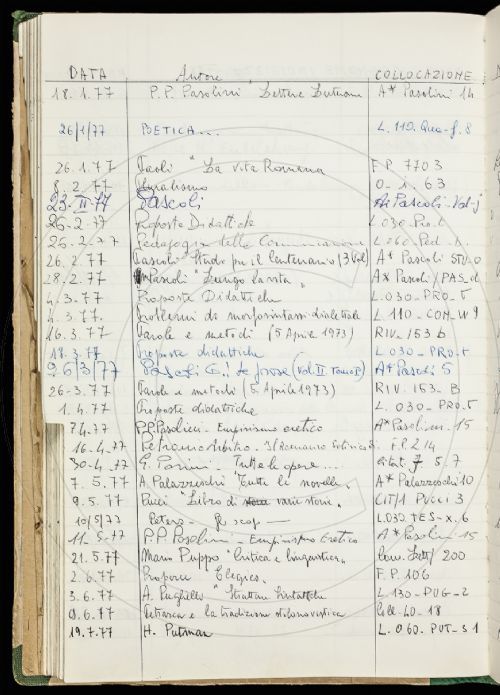 DATA Autore COLLOCAZIONE
18.1.77 P.P. Pasolini "Lettere Luterane A* Pasolini 14
26/1/77 POETICA... L. 110. Qua-f. 8
26.1.77 Paoli "La vita Romana F.P. 7703
8.2.77 O-1.63
23-II-77 Pascoli A* Pascoli
26-2-77 Proposte Didattiche L.030-Pro.t
26.2.77 Pedagogia della Comunicazione L.060-Ped.
26.2.77 Pascoli "Studi per il Centenario (3 Vol) A* Pascoli STU-0
28.2.77 Pascoli "Lungo la vita" A* Pascoli/PAS
4.3.77 Proposte Didattiche L.030-PRO-t
4.3.77. Problemi di morfosintassi dialettale L.110-COM-W9
16.3.77 Parole e metodi (5 Aprile 1973) RIV. 153 b
18.3.77 Proposte didattiche L.030-PRO-t
26/3/77 Pascoli G.: le prose (Vol. II tomo I°) A* Pascoli 5
26-3.77 Parole e metodi (5 Aprile 1973) RIV. 153-B
1.4.77 Proposte didattiche L. 030-PRO.t
7.4.77 P.P. Pasolini - Empirismo eretico A* Pasolini-15
16-4.77 Petronio Arbitro - F.P. 214
30-4.77 G. Parini - Tutte le opere... 5.7
7.5.77 A. Palazzeschi "Tutte le novelle" A* Palazzeschi 10
9.5.77 Pucci "Libro di varie storie" CIT/1 PUCCI 3
10/5/77 L.032 TES-X.6
11-5-77 P.P. Pasolini - Empirismo Eretico A* Pasolini 15
21.5.77 Mario Puppo "Critica e linguistica" 200
2.6.77 F.P. 106
3.6.77 A. Puglielli "Strutture Sintattiche L-130-PUG-2
9.6.77 Petrarca e la tradizione stilnovistica Coll-40-18
19.7.77 H. Putnam L.060-PUT-31